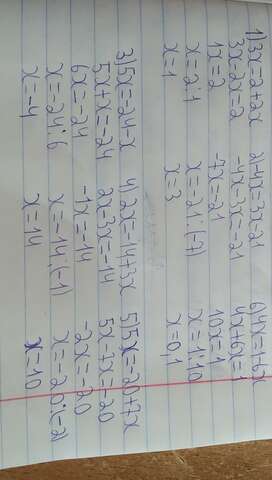 1)3x=2+2x 2)-4x=3x-21 6)4x=1-6x
3x-2x=2 -4x-3x=-21 4x+6x=1
1x=2 -7x=21 10x=1
x=2:1 x=-21:(-7) x=1:10
x=1 x=3 x=0,1
3)5x=-24-x 4)2x=-14+3x 5)5x=-20+7x
5x+x=-24 2x-3x=-14 5x-7x=-20
6x=-24 -1x=-14 -2x=-20
x=-24:6 x=-14:(-1) x=-20:(-2)
x=-4 x=14 x=10